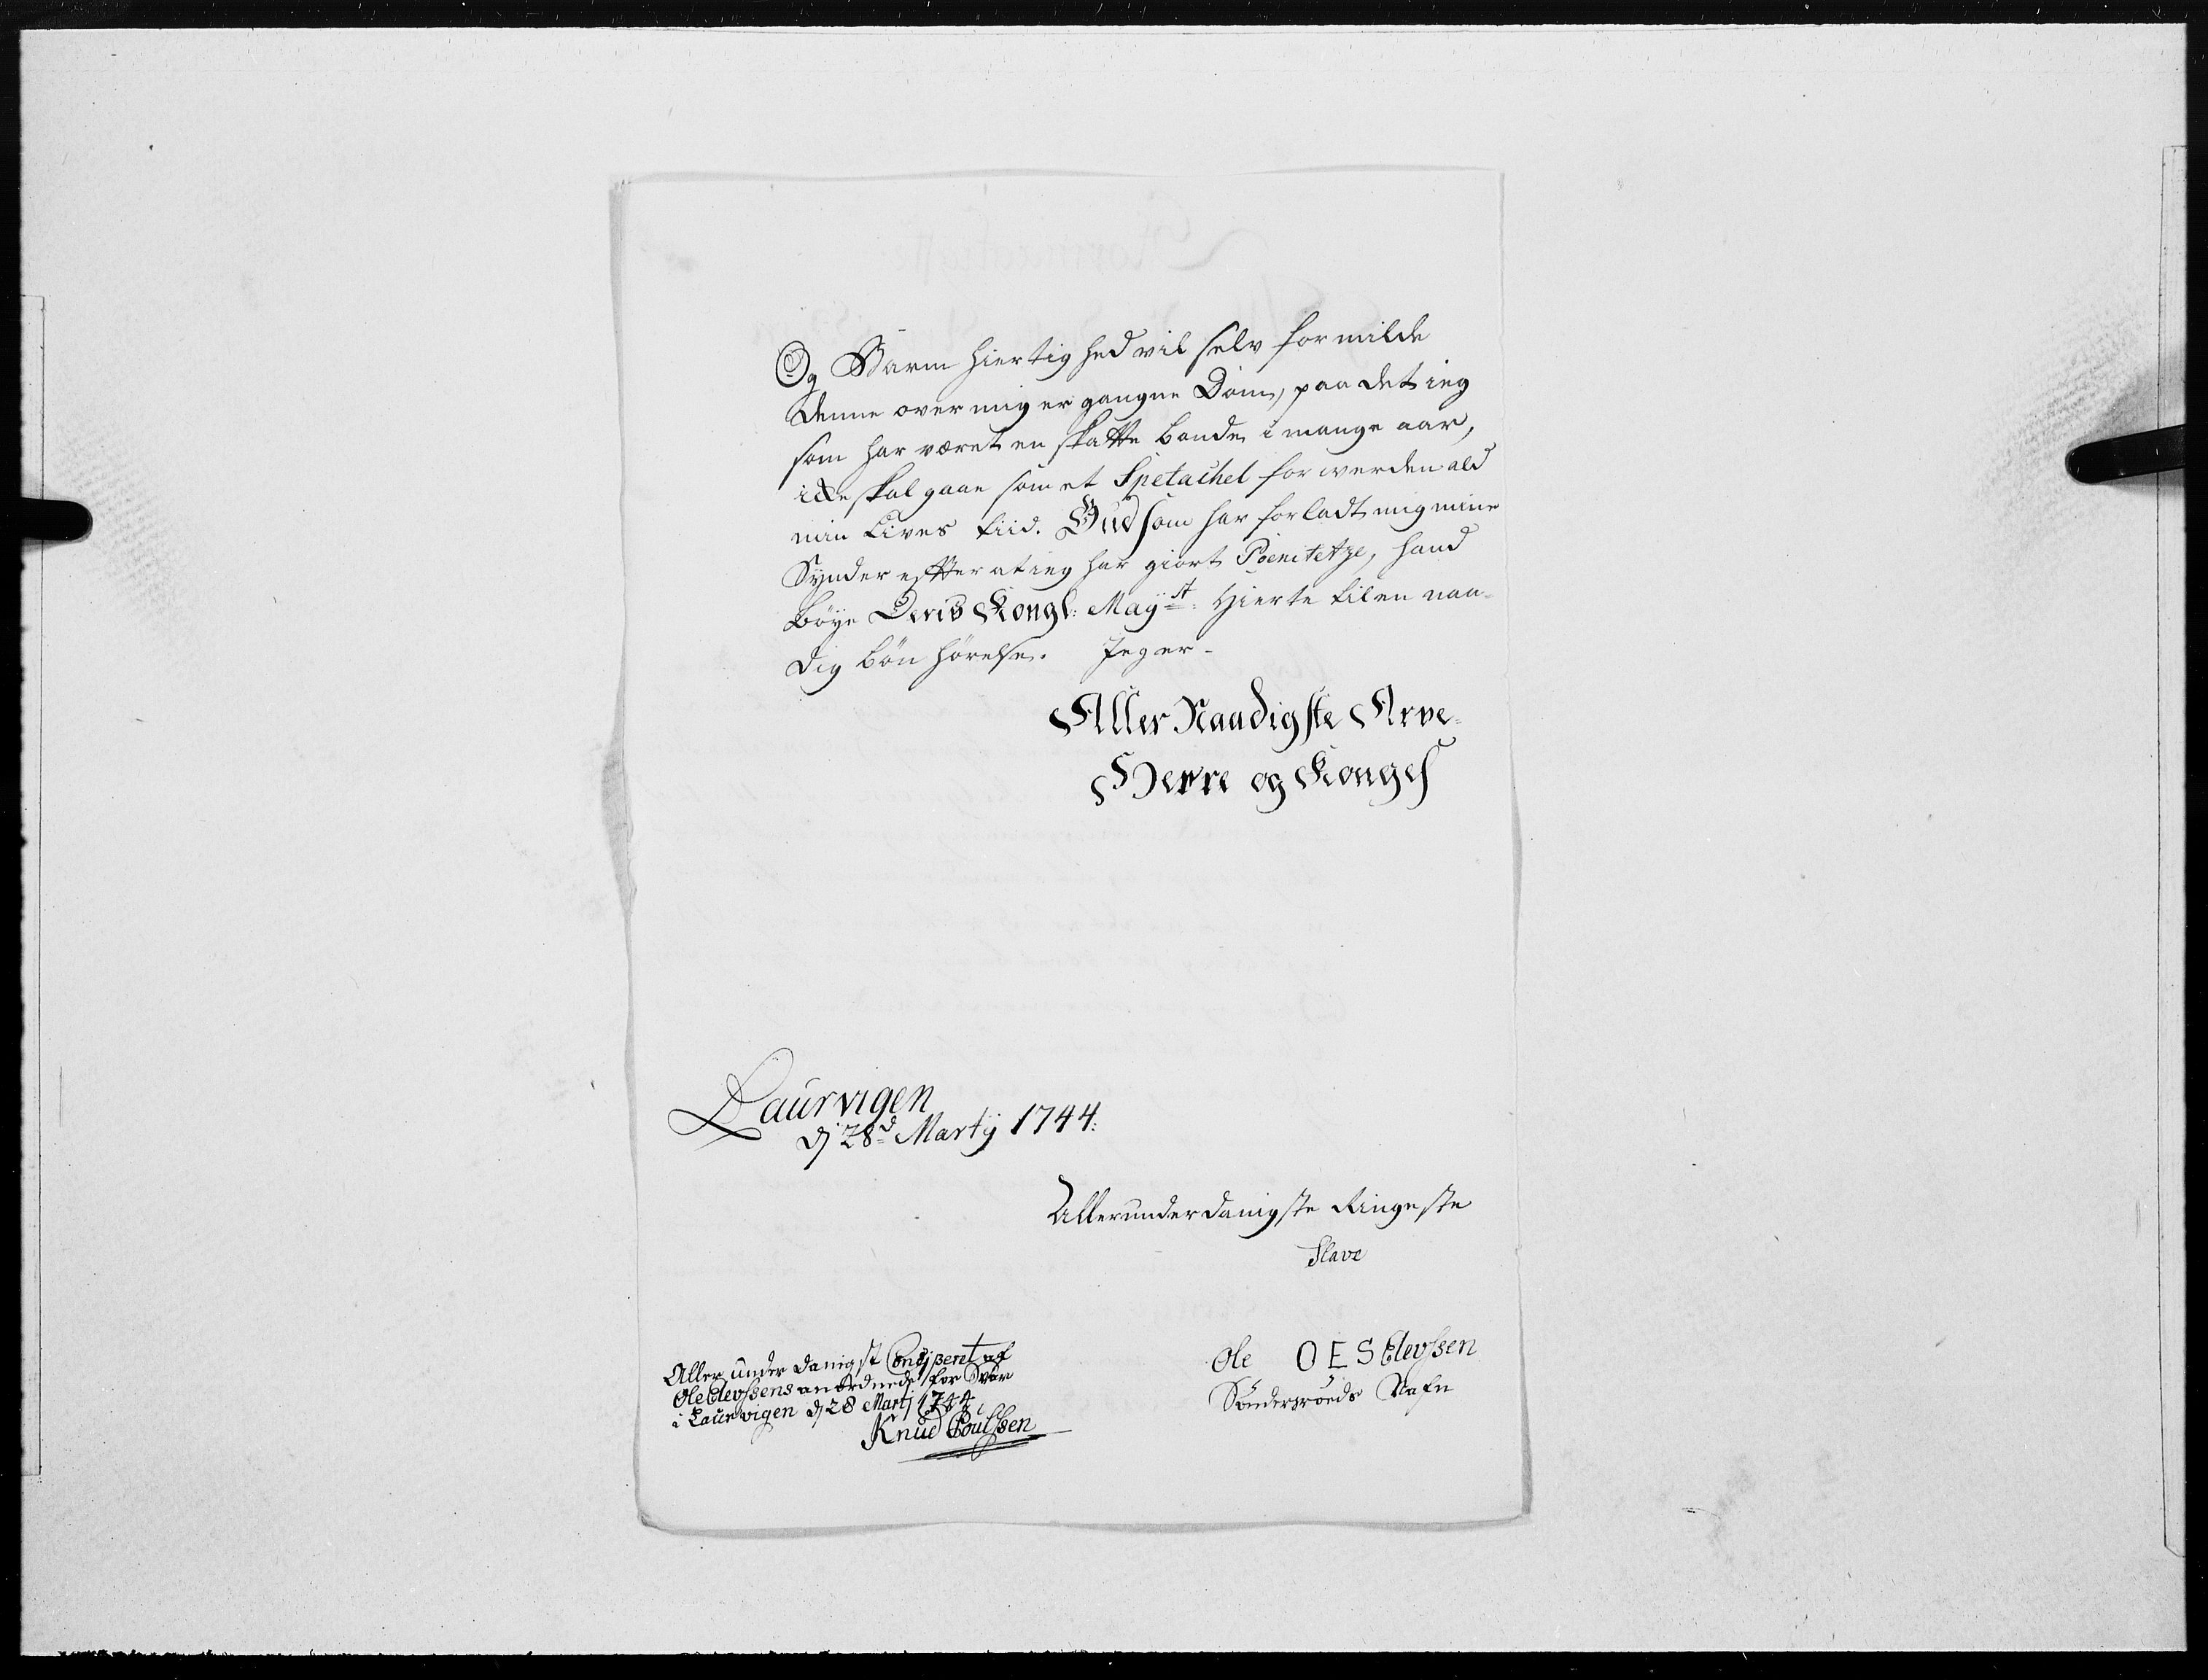 Og Barm hiertighed vil selv formilde
denne over mig er gangne Dom, paa det ieg
som har været en skatte bonde i mange aar,
icke skal gaae som et Spetachel for werden ald
min Lives tiid. Gud som har forladt mig mine
Synder effter at ieg har giort Poenitetze, hand
bøye Deris Kongl: Mayst: Hierte til en naa-
dig bøn hørelse. Jeg er-
Aller Naadigste Arve-
Herre og Konges
Laurvigen
dj 28d Martij 1744:
Allerunderdanigste Ringeste
Slave
Aller under danigst Consiperet af
Ole Elevssens anordnede for Svar
i Laurvigen dj 28 Martj 1744.
Knud Poulssen
Ole O E S Elevssen
Sønderrøeds Nafn